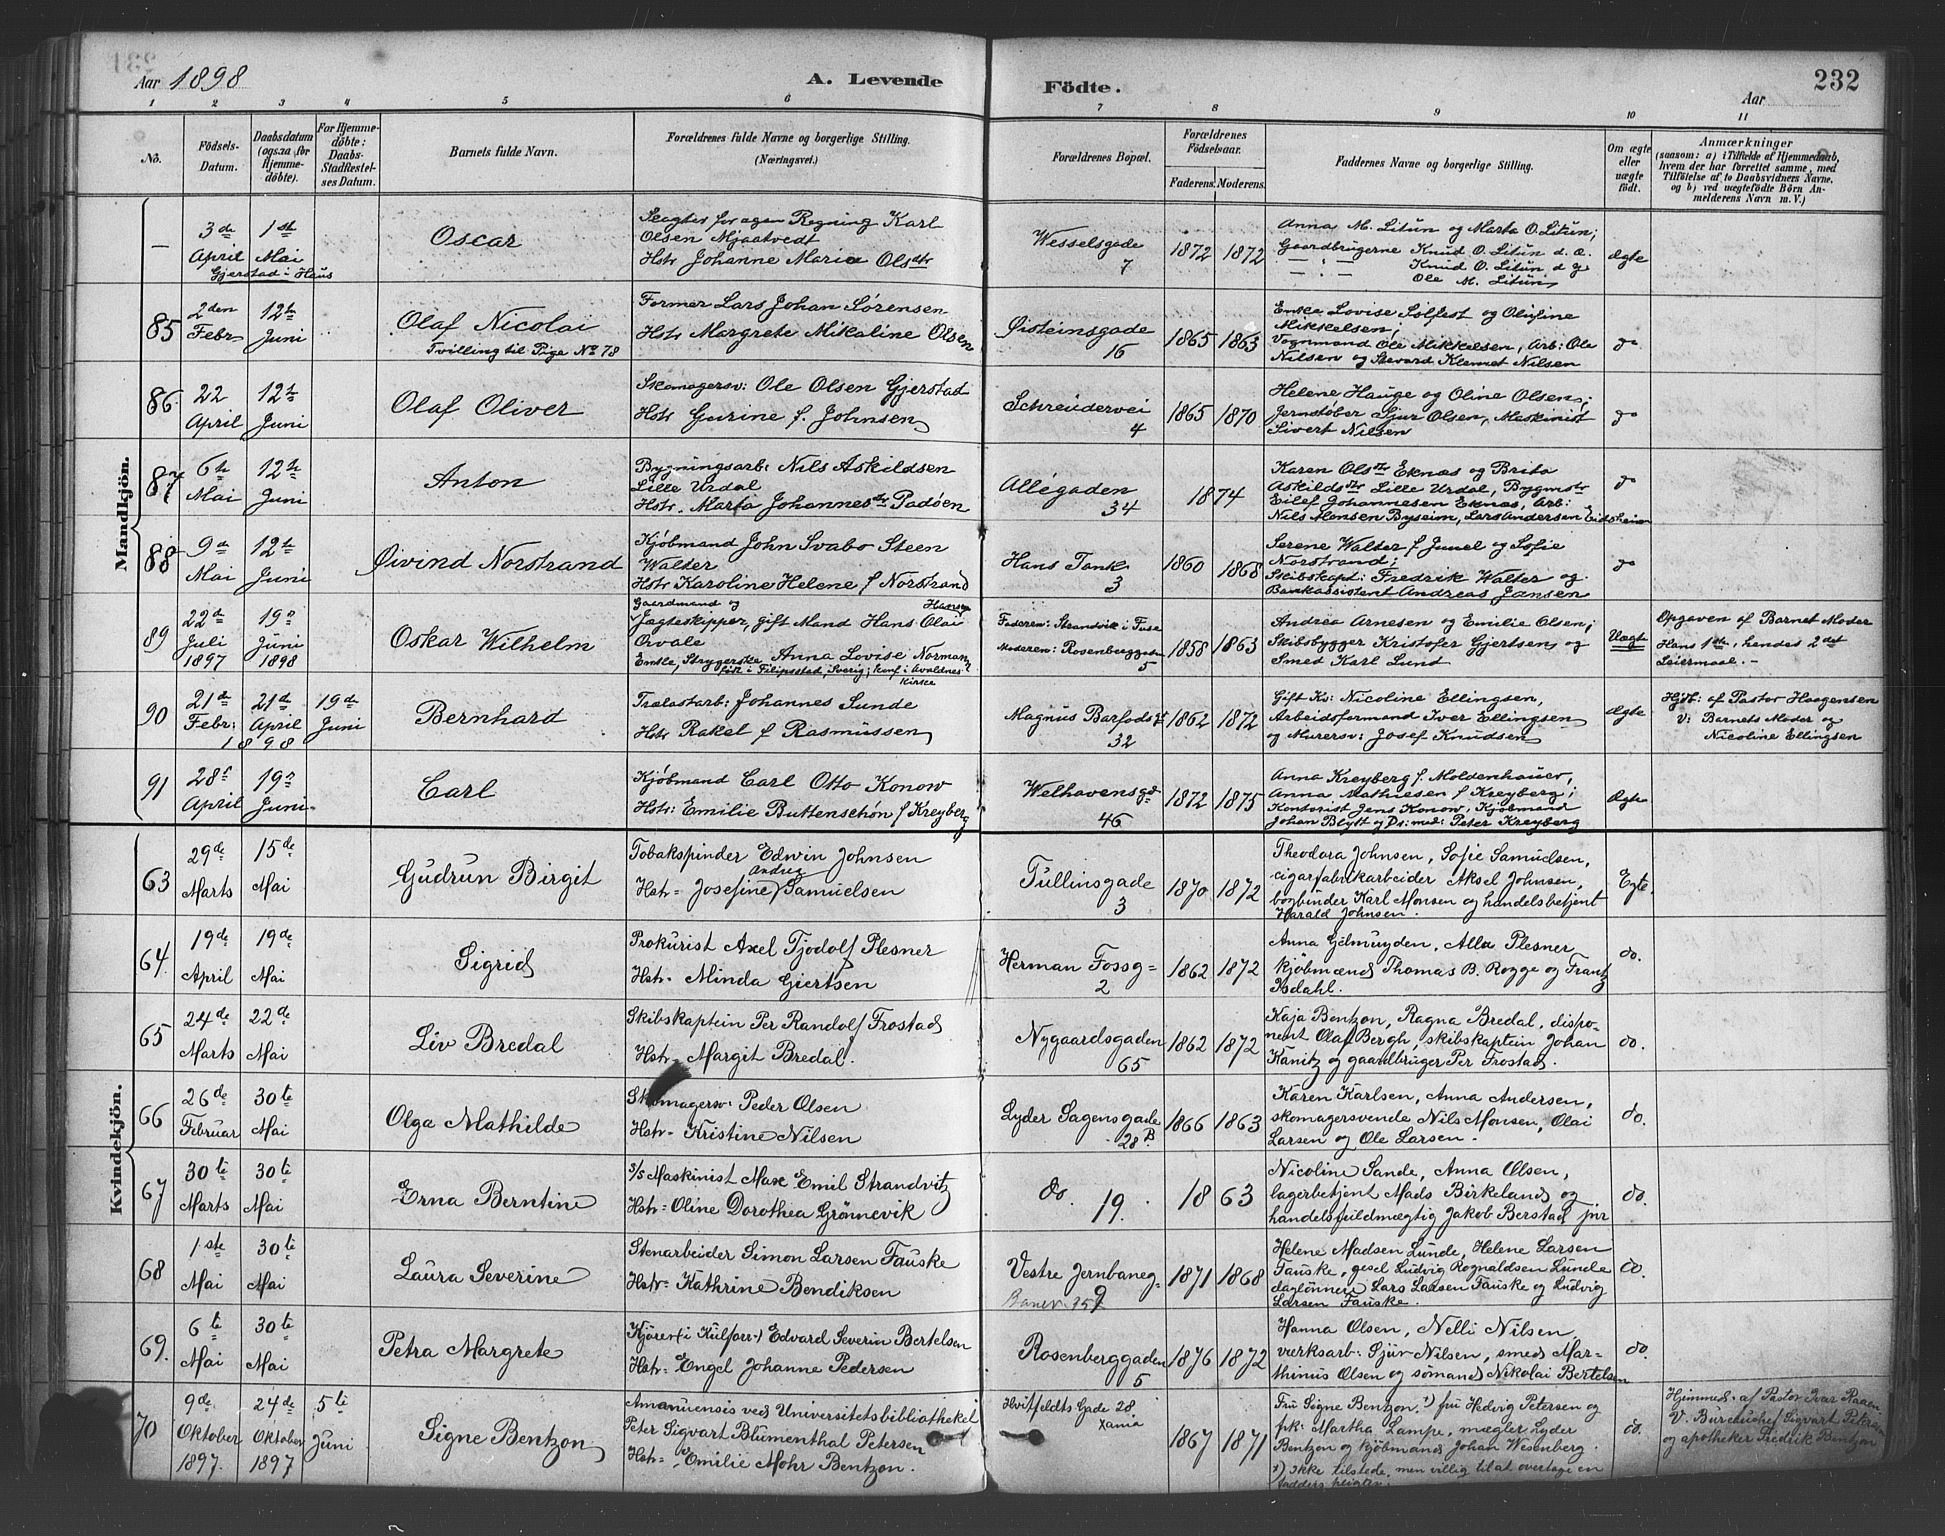 Aar 1898
A. Levende
Födte.
Aar
232
1 2 3 4 5 6 7 8 9 10 11
No.
Födsels-
Datum.
Daabsdatum
(ogsaa for
Hjemme-
döbte).
For Hjemme-
döbte:
Daabs-
Stadfæstel-
ses Datum.
Barnets fulde Navn.
Forældrenes fulde Navne og borgerlige Stilling.
(Næringsvei.)
Forældrenes Bopæl.
Forældrenes
Födselsaar.
Faderens. Moderens.
Faddernes Navne og borgerlige Stilling.
Om ægte
eller
uægte
födt.
Anmærkninger
(saasom: a) i Tilfælde af Hjemmedaab,
hvem der har forrettet samme, med
Tilföielse af to Daabsvidners Navne,
og b) ved uægtefödte Börn An-
melderens Navn m. V.)
Mandkjön.
—
3de
April
1ste
Mai
Gjerstad i Haus
Oscar
Slagter for egen Regning Karl
Olsen Mjaatvedt
Hstr Johanne Maria Olsdtr
Wesselsgade
7
1872 1872
Anna M. Litun og Marta O. Litun;
Gaardbrugerne Knud O. Litun d. æ.
— " — Knud O. Litun d. y.
Ole M. Litun
Ægte
85
2den
Febr
12te
Juni
Olaf Nicolai
Tvilling til Pige No 78
Former Lars Johan Sørensen
Hstr Margrete Mikaline Olsen
Øisteinsgade
16
1865 1863
Enke Lovise Solfest og Olufine
Mikkelsen;
Vognmand Ole Mikkelsen, Arb: Ole
Nilsen og Stevard Klemet Nilsen
do
86
22
April
12te
Juni
Olaf Oliver
Skomagersv: Ole Olsen Gjerstad
Hstr Gurine f. Johnsen
Schreudervei
4
1865 1870
Helene Hauge og Oline Olsen;
Jernstøber Sjur Olsen, Maskinist
Sivert Nilsen
do
87
6te
Mai
12te
Juni
Anton
Bygningsarb: Nils Askildsen
Lille Urdal
Hstr. Marta Johannesdtr Padøen
Allégaden
34
1874
Karen Olsdtr Eknæs og Brita
Askildsdtr Lille Urdal, Bygmstr
Eilef Johannesen Eknæs, Arb:
Nils Monsen Byseim, Lars Andersen Eidsheim
do
88
9de
Mai
12te
Juni
Øivind Norstrand
Kjøbmand John Svabo Steen
Walter
Hstr Karoline Helene f Norstrand
Hans Tank
3
1860 1868
Serene Walter f Juuel og Sofie
Norstrand;
Skibskapt: Fredrik Walter og
Bankassistent Andreas Jansen
do
89
22de
Juli
1897
19de
Juni
1898
Oskar Wilhelm
Gaardmand og Hansen
Jægteskipper, gift Mand Hans Olai
Orvale
Enke, Strygerske Anna Lovise Normann
født i Filipsstad, Sverig; konf i Avaldnes
Kirke
Faderen: Strandvik i Fuse
Moderen: Rosenberggaden
5
1858 1863
Andrea Arnesen og Emilie Olsen;
Skibsbygger Kristofer Gjertsen og
Smed Karl Lund
Uægte
Opgaven af Barnet Moder
Hans 1ste, hendes 2det
Leiermaal. -
90
21de
Febr:
21de
April
1898
19de
Juni
Bernhard
Trælastarb: Johannes Sunde
Hstr Rakel f Rasmussen
Magnus Barfodsgt
32
1862 1872
Gift Ks: Nicoline Ellingsen,
Arbeidsformand Iver Ellingsen
og Murersv: Josef Knudsen
Ægte
Hjdb: af Pastor Haagensen
V: Barnets Moder og
Nicoline Ellingsen
91
28de
April
19de
Juni
Carl
Kjøbmand Carl Otto Konow
Hstr: Emilie Buttenschøn f Kreyberg
Welhavensgd
46
1872 1875
Anna Kreyberg f. Moldenhauer,
Anna Mathiesen f Kreyberg;
Kontorist Jens Konow, Kjøbmand
Johan Blytt og Ds: med: Peter Kreyberg
Ægte
Kvindekjön.
63
29de
Marts
15de
Mai
Gudrun Birgit
Tobakspinder Edwin Johnsen
Andrea
Hstr= Josefine Samuelsen
Tullinsgade
3
1870 1872
Theodora Johnsen, Sofie Samuelsen,
cigarfabrikarbeider Aksel Johnsen,
bogbinder Karl Monsen og handelsbetjent
Harald Johnsen.
Egte.
64
19de
April
19de
Mai
Sigrid
Prokurist Axel Tjodolf Plesner
Hstr= Minda Giertsen
Herman Fossg=
2
1862 1872
Anna Gilmuyden, Alla Plesner
kjøbmænd Thomas B. Rogge og Frantz
Isdahl.
do.
65
24de
Marts
22de
Mai
Liv Bredal
Skibskaptein Per Randolf Frostad
Hstr= Margit Bredal.
Nygaardsgaden
65
1862 1872
Kaja Bentzon, Ragna Bredal, dispo-
nent Olaf Bergh, skibskaptein Johan
Kanitz og gaardbruger Per Frostad.
do.
66
26de
Februar
30te
Mai
Olga Mathilde
Skomagersv: Peder Olsen
Hstr= Kristine Nilsen
Lyder Sagensgade
28B
1866 1863
Karen Karlsen, Anna Andersen,
skomagersvende Nils Monsen, Olai
Larsen og Ole Larsen.
do.
67
30te
Marts
30te
Mai
Erna Berntine
S/S Maskinist Max Emil Strandvitz
Hstr= Oline Dorothea Grønnevik
do. 19.
1863
Nicoline Sande, Anna Olsen,
lagerbetjent Mads Birkeland og
handelsfuldmægtig Jakob Berstad jnr
do.
68
1ste
Mai
30te
Mai
Laura Severine
Stenarbeider Simon Larsen Fauske
Hstr= Kathrine Bendiksen
Vestre Jernbaneg-
9
1871 1868
Helene Madsen Lunde, Helene Larsen
Fauske, gesel Ludvig Rognaldsen Lunde
daglønner Lars Larsen Fauske og Ludvig
Larsen Fauske.
do.
69.
6te
Mai
30te
Mai
Petra Margrete
Kjører (i Kulforr.) Edvard Severin Bertelsen
Hstr= Engel Johanne Pedersen
Rosenberggaden
5
1876 1872
Hanna Olsen, Nelli Nilsen,
værksarb: Sjur Nilsen, smed Mar-
thinus Olsen og sømand Nikolai Bertelsen
do.
70
9de
Oktober
1897.
24de
Oktober
1897
5te
Juni
Signe Bentzon
Amanuensis ved Universitetsbibliotheket
Peter Sigvart Blumenthal Petersen
Hstr= Emilie Mohr Bentzon.
Hvitfeldts Gade 28
Xania
1867 1871
Fru Signe Bentzon, *) fru Hedvig Petersen og
frk. Martha Lampe, mægler Lyder
Bentzon og kjøbmand Johan Wesenberg.
*) ikke tilstede, men villig til at overtage en
fadders pligter.
do.
Hjemmed. af Pastor Ivar Raaen
V. Bureauchef Sigvart Petersen
og apotheker Fredrik Bentzon